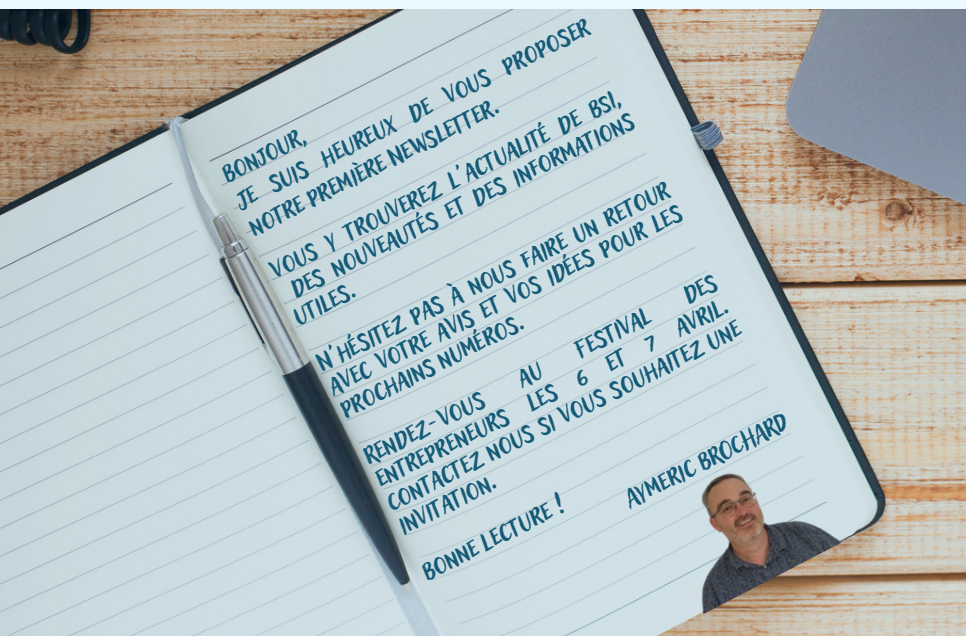 BONJOUR,
JE SUIS HEUREUX DE VOUS PROPOSER
NOTRE PREMIÈRE NEWSLETTER.
VOUS Y TROUVEREZ L'ACTUALITÉ DE BSI,
DES NOUVEAUTÉS ET DES INFORMATIONS
UTILES.
N'HÉSITEZ PAS À NOUS FAIRE UN RETOUR
AVEC VOTRE AVIS ET VOS IDÉES POUR LES
PROCHAINS NUMÉROS.
RENDEZ-VOUS AU FESTIVAL DES
ENTREPRENEURS LES 6 ET 7 AVRIL.
CONTACTEZ NOUS SI VOUS SOUHAITEZ UNE
INVITATION.
BONNE LECTURE !
AYMERIC BROCHARD